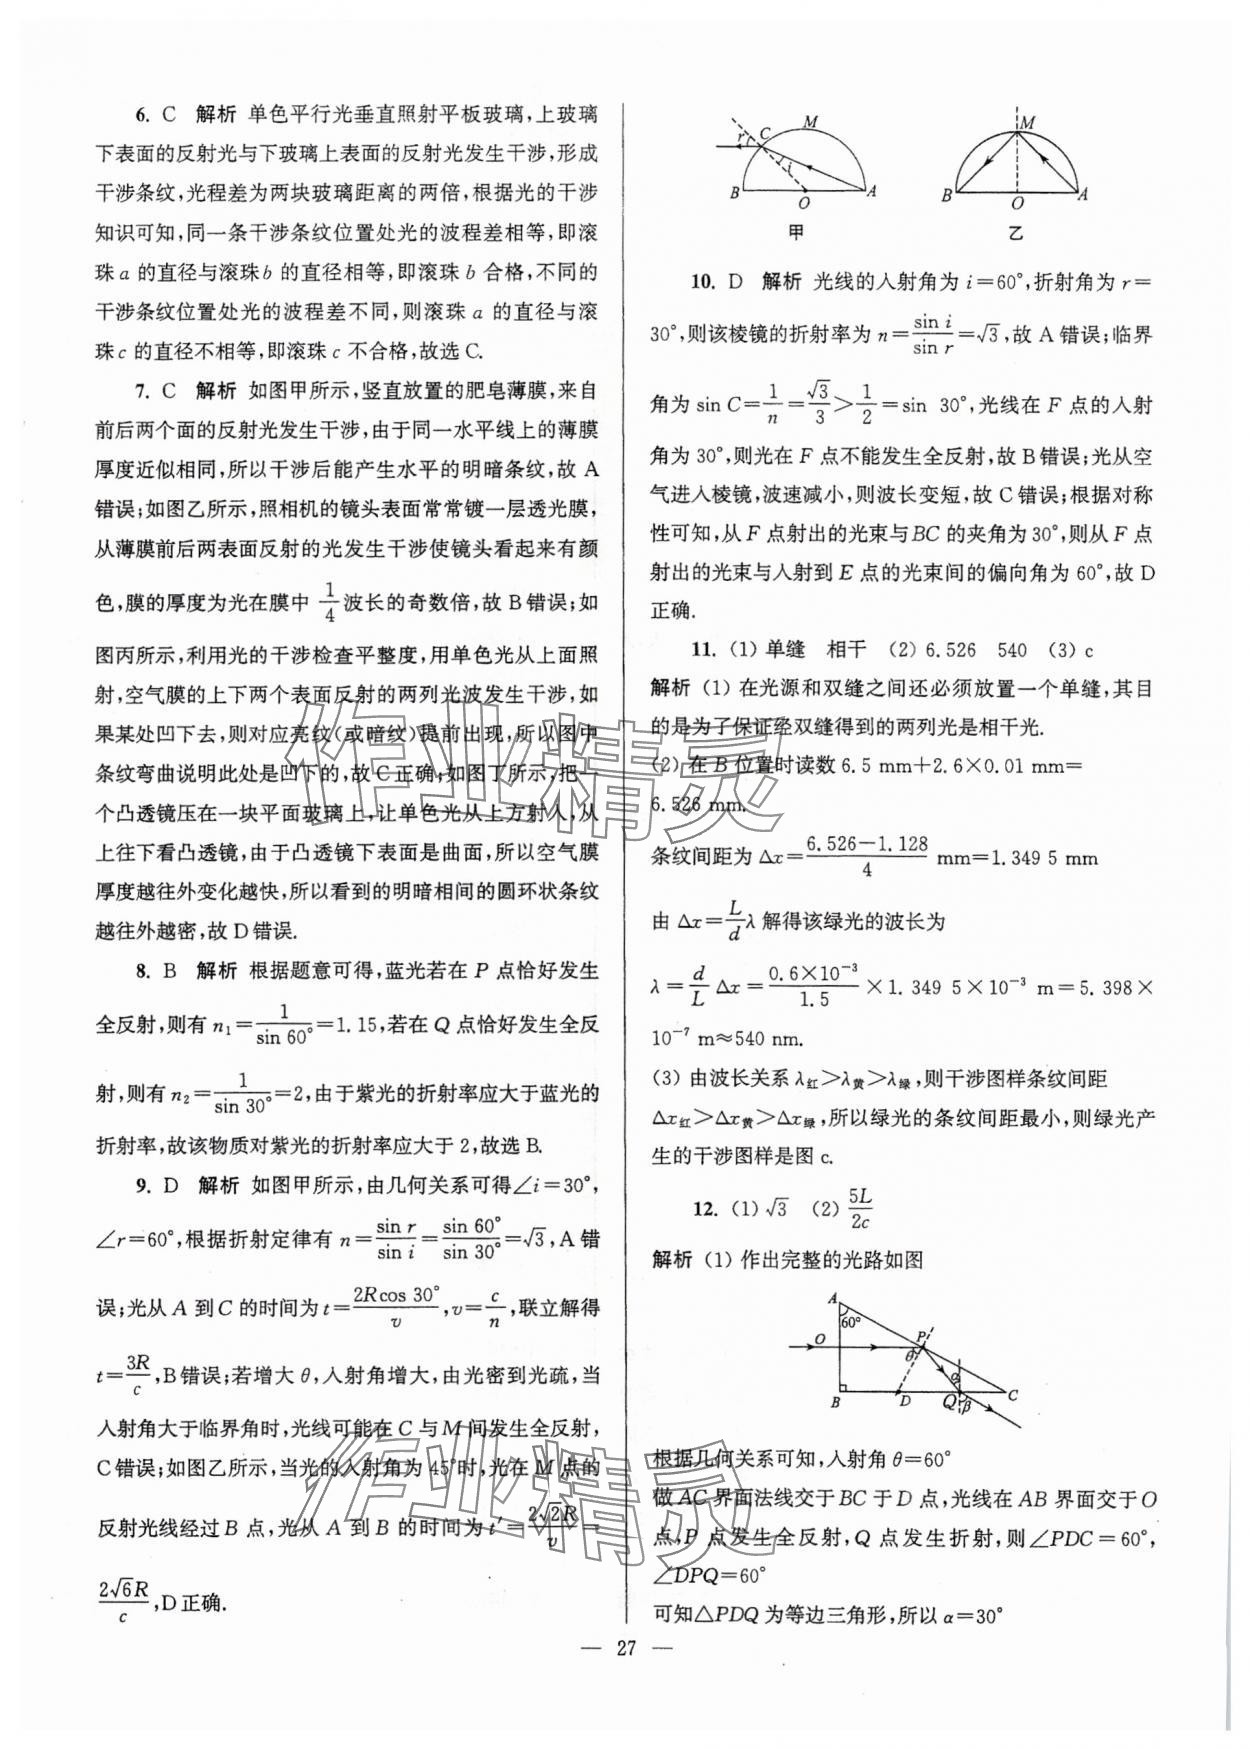 6. C 解析 单色平行光垂直照射平板玻璃,上玻璃
下表面的反射光与下玻璃上表面的反射光发生干涉,形成
干涉条纹,光程差为两块玻璃距离的两倍,根据光的干涉
知识可知,同一条干涉条纹位置处光的波程差相等,即滚
珠a的直径与滚珠b的直径相等,即滚珠b合格,不同的
干涉条纹位置处光的波程差不同,则滚珠a的直径与滚
珠c的直径不相等,即滚珠c不合格,故选C.
7. C 解析 如图甲所示,竖直放置的肥皂薄膜,来自
前后两个面的反射光发生干涉,由于同一水平线上的薄膜
厚度近似相同,所以干涉后能产生水平的明暗条纹,故A
错误;如图乙所示,照相机的镜头表面常常镀一层透光膜,
从薄膜前后两表面反射的光发生干涉使镜头看起来有颜
色,膜的厚度为光在膜中 1/4 波长的奇数倍,故B错误;如
图丙所示,利用光的干涉检查平整度,用单色光从上面照
射,空气膜的上下两个表面反射的两列光波发生干涉,如
果某处凹下去,则对应亮纹(或暗纹)提前出现,所以图中
条纹弯曲说明此处是凹下的,故C正确;如图丁所示,把一
个凸透镜压在一块平面玻璃上,让单色光从上方射入,从
上往下看凸透镜,由于凸透镜下表面是曲面,所以空气膜
厚度越往外变化越快,所以看到的明暗相间的圆环状条纹
越往外越密,故D错误.
8. B 解析 根据题意可得,蓝光若在P点恰好发生
全反射,则有n₁=1/sin 60°=1.15,若在Q点恰好发生全反
射,则有n₂=1/sin 30°=2,由于紫光的折射率应大于蓝光的
折射率,故该物质对紫光的折射率应大于2,故选B.
9. D 解析 如图甲所示,由几何关系可得∠i=30°,
∠r=60°,根据折射定律有n=sin r/sin i=sin 60°/sin 30°=√3,A错
误;光从A到C的时间为t=2Rcos 30°/v,v=c/n,联立解得
t=3R/c,B错误;若增大θ,入射角增大,由光密到光疏,当
入射角大于临界角时,光线可能在C与M间发生全反射,
C错误;如图乙所示,当光的入射角为45°时,光在M点的
反射光线经过B点,光从A到B的时间为t′=2√2R/v=
2√6R/c,D正确.
r C M i B O A
甲
M B O A
乙
10. D 解析 光线的入射角为i=60°,折射角为r=
30°,则该棱镜的折射率为n=sin i/sin r=√3,故A错误;临界
角为sin C=1/n=√3/3>1/2=sin 30°,光线在F点的入射
角为30°,则光在F点不能发生全反射,故B错误;光从空
气进入棱镜,波速减小,则波长变短,故C错误;根据对称
性可知,从F点射出的光束与BC的夹角为30°,则从F点
射出的光束与入射到E点的光束间的偏向角为60°,故D
正确.
11. (1) 单缝 相干 (2) 6.526 540 (3) c
解析 (1) 在光源和双缝之间还必须放置一个单缝,其目
的是为了保证经双缝得到的两列光是相干光.
(2) 在B位置时读数6.5 mm+2.6×0.01 mm=
6.526 mm.
条纹间距为Δx=(6.526−1.128)/4 mm=1.349 5 mm
由Δx=L/d λ解得该绿光的波长为
λ=d/L Δx=(0.6×10⁻³)/1.5×1.349 5×10⁻³ m=5.398×
10⁻⁷ m≈540 nm.
(3) 由波长关系λ红>λ黄>λ绿,则干涉图样条纹间距
Δx红>Δx黄>Δx绿,所以绿光的条纹间距最小,则绿光产
生的干涉图样是图c.
12. (1) √3 (2) 5L/2c
解析 (1) 作出完整的光路如图
A 60° O P θ α B D Q β C
根据几何关系可知,入射角θ=60°
做AC界面法线交于BC于D点,光线在AB界面交于O
点,P点发生全反射,Q点发生折射,则∠PDC=60°,
∠DPQ=60°
可知△PDQ为等边三角形,所以α=30°
— 27 —
作业精灵
作业精灵